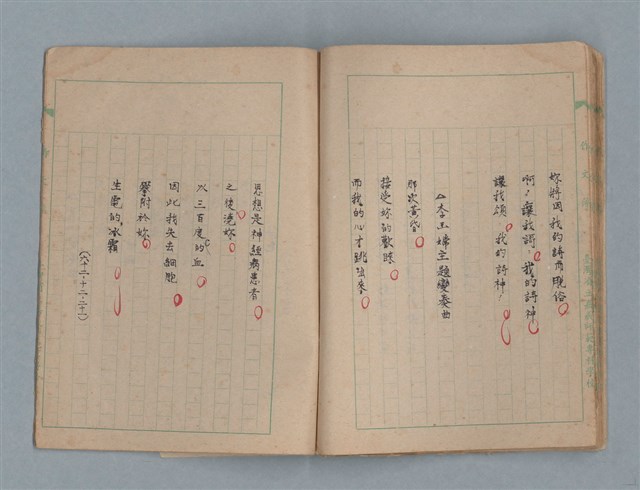 妳將因我的詩而脫俗
啊！讓我謌，我的詩神
讓我頌，我的詩神！
△李玉婦主題變奏曲
那次黃昏
接受妳的歡睬
而我的心才跳強來
思想是神經病患者
之後，澆妳
以三百度的血
因此我失去細胞
攀附於妳
生電的，冰霜
（六十二．十二．二十一）